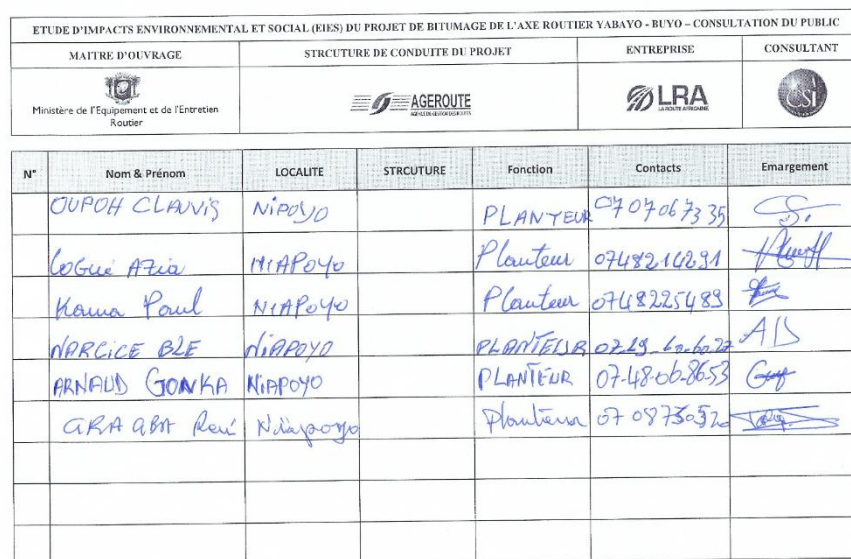 ETUDE D'IMPACTS ENVIRONNEMENTAL ET SOCIAL (EIES) DU PROJET DE BITUMAGE DE L'AXE ROUTIER YABAYO - BUYO – CONSULTATION DU PUBLIC
MAITRE D'OUVRAGE STRCUTURE DE CONDUITE DU PROJET ENTREPRISE CONSULTANT
Ministère de l'Equipement et de l'Entretien
Routier
AGEROUTE
AGENCE DE GESTION DES ROUTES
LRA
LA ROUTE AFRICAINE
CSI
N° Nom & Prénom LOCALITE STRCUTURE Fonction Contacts Emargement
OUPOH CLAUVIS NiPOYO PLANTEUR 0707067335
AZia NIAPOYO Planteur 0748214291
Kama Paul NIAPOYO Planteur 0748225489
NARCICE BLE NiAPOYO PLANTEUR
ARNAUD GONKA NiAPOYO PLANTEUR 07-48-06-8653
GBA René Niapoyo Planteur